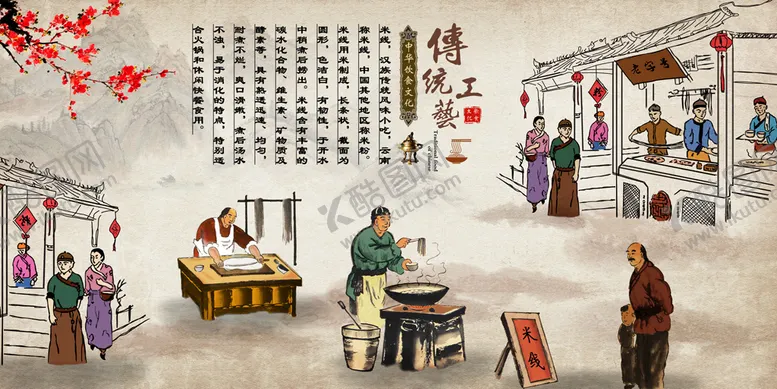 傳统工藝
中华饮食文化
米线，汉族传统风味小吃，云南
称米线，中国其他地区称米粉。
米线用米制成，长条状，截面为
圆形，色洁白，有韧性，于开水
中稍煮后捞出。米线含有丰富的
碳水化合物、维生素、矿物质及
酵素等，具有熟透迅速、均匀，
耐煮不烂，爽口滑嫩，煮后汤水
不浊，易于消化的特点，特别适
合火锅和休闲快餐食用。
老字号
米线
酷图网
www.ikutu.com